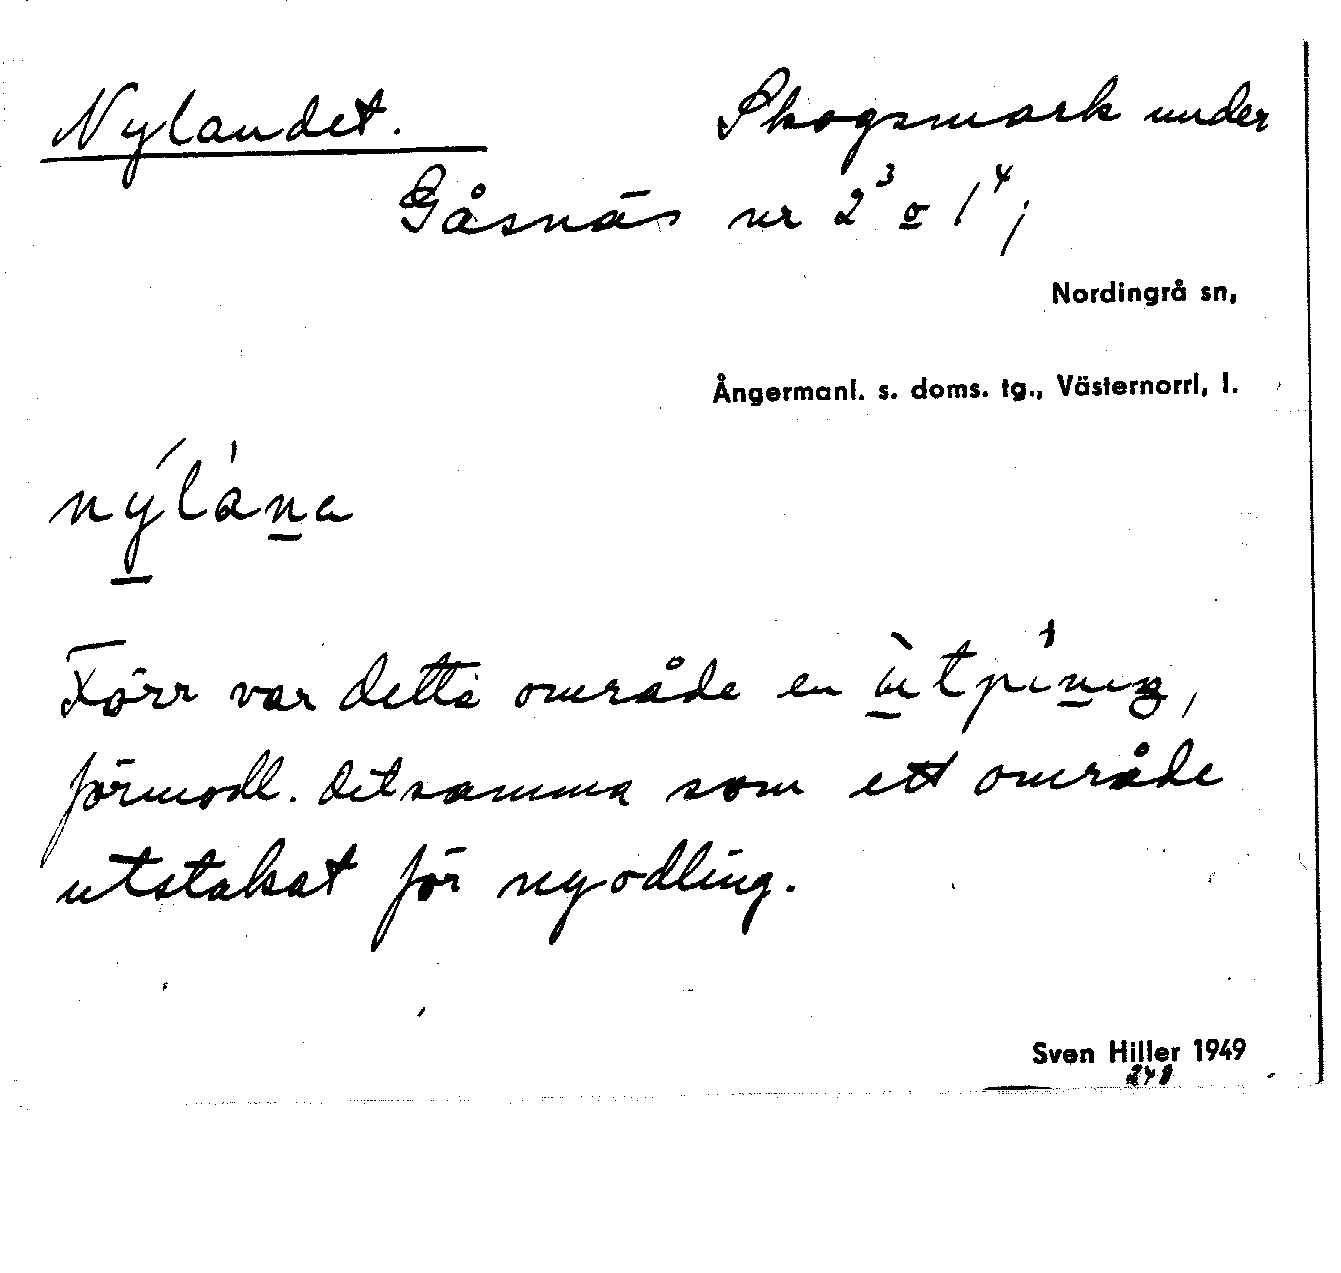 Nylandet. Skogsmark under
Gåsnäs nr 2³ o 1⁴;
Nordingrå sn,
Ångermanl. s. doms. tg., Västernorrl, l.
nýlána
Förr var detta område en ùtpíning,
förmodl. detsamma som ett område
utstakat för nyodling.
Sven Hiller 1949